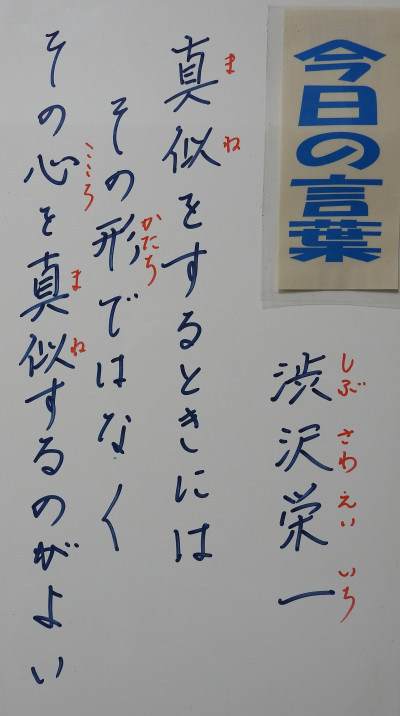 今日の言葉
渋沢栄一
しぶさわえいいち
真似をするときには
まね
その形ではなく
かたち
その心を真似するのがよい
こころ まね